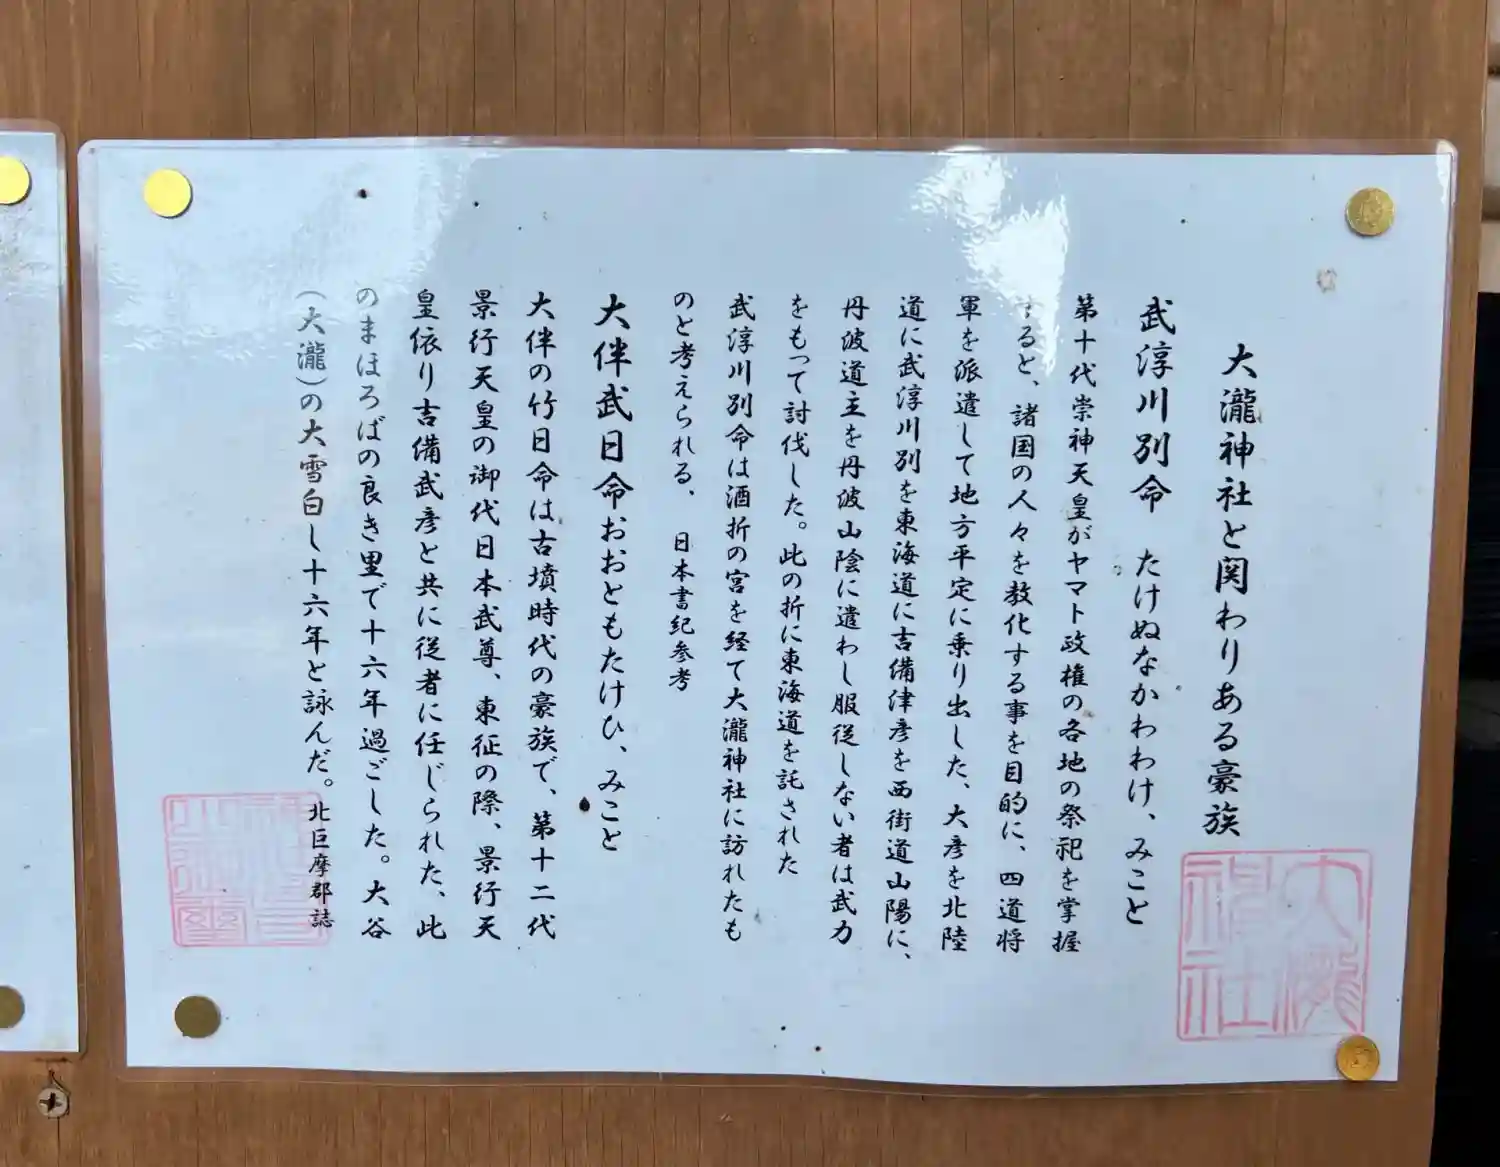 大瀧神社と関わりある豪族
武淳川別命　たけぬなかわわけ、みこと
第十代崇神天皇がヤマト政権の各地の祭祀を掌握
すると、諸国の人々を教化する事を目的に、四道将
軍を派遣して地方平定に乗り出した、大彦を北陸
道に武淳川別を東海道に吉備津彦を西街道山陽に、
丹波道主を丹波山陰に遣わし服従しない者は武力
をもって討伐した。此の折に東海道を託された
武淳川別命は酒折の宮を経て大瀧神社に訪れたも
のと考えられる、　日本書紀参考
大伴武日命おおともたけひ、みこと
大伴の竹日命は古墳時代の豪族で、第十二代
景行天皇の御代日本武尊、東征の際、景行天
皇依り吉備武彦と共に従者に任じられた、此
のまほろばの良き里で十六年過ごした。大谷
（大瀧）の大雪白し十六年と詠んだ。北巨摩郡誌
大瀧
神社